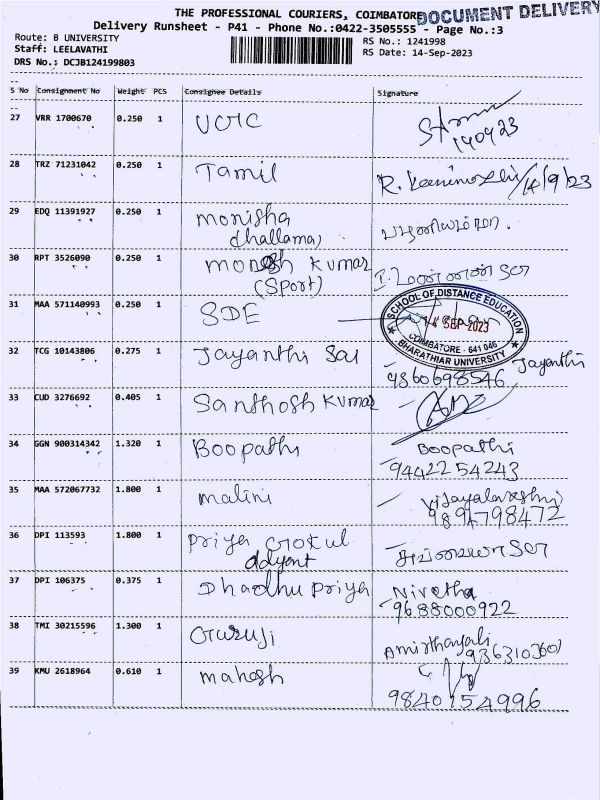 THE PROFESSIONAL COURIERS, COIMBATORE
DOCUMENT DELIVERY
Delivery Runsheet - P41 - Phone No.:0422-3505555 - Page No.:3
Route: B UNIVERSITY
Staff: LEELAVATHI
DRS No.: DCJB124199803
RS No.: 1241998
RS Date: 14-Sep-2023
S No Consignment No Weight PCS Consignee Details Signature
27 VRR 1700670 0.250 1 UCIC
140923
28 TRZ 71231042 0.250 1 Tamil
R. 14/9/23
29 EDQ 11391927 0.250 1 monisha
dhallama,
30 RPT 3526090 0.250 1 monesh kumar
(Sport)
31 MAA 571140993 0.250 1 SDE
SCHOOL OF DISTANCE EDUCATION
14 SEP 2023
COIMBATORE - 641 046
BHARATHIAR UNIVERSITY
32 TCG 10143806 0.275 1 Jayanthi Sai Jayanthi
9860698546
33 CUD 3276692 0.405 1 Santhosh Kumar
34 GGN 900314342 1.320 1 Boopathi Boopathi
9442254243
35 MAA 572067732 1.800 1 malini Vijayalakshmi
9894798472
36 DPI 113593 1.800 1 Priya Gokul
adyant
37 DPI 106375 0.375 1 Dhadhu Priya Nivetha
9688000922
38 TMI 30215596 1.300 1 Guruji
Amirthavali
39 KMU 2618964 0.610 1 mahesh
9840154996